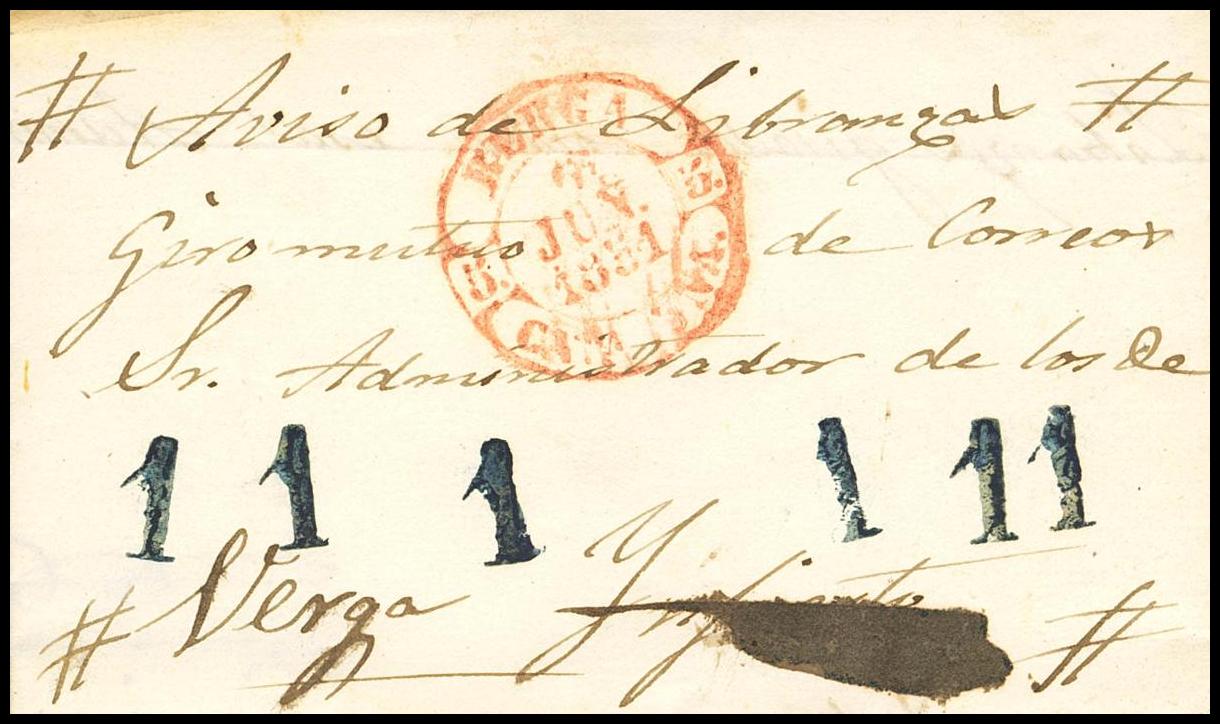 # Aviso de Libranzas #
BERGA
JUN.
1851
Giro mutuo de Correos
Sr. Administrador de los De
1 1 1 1 1 1
# Verga #